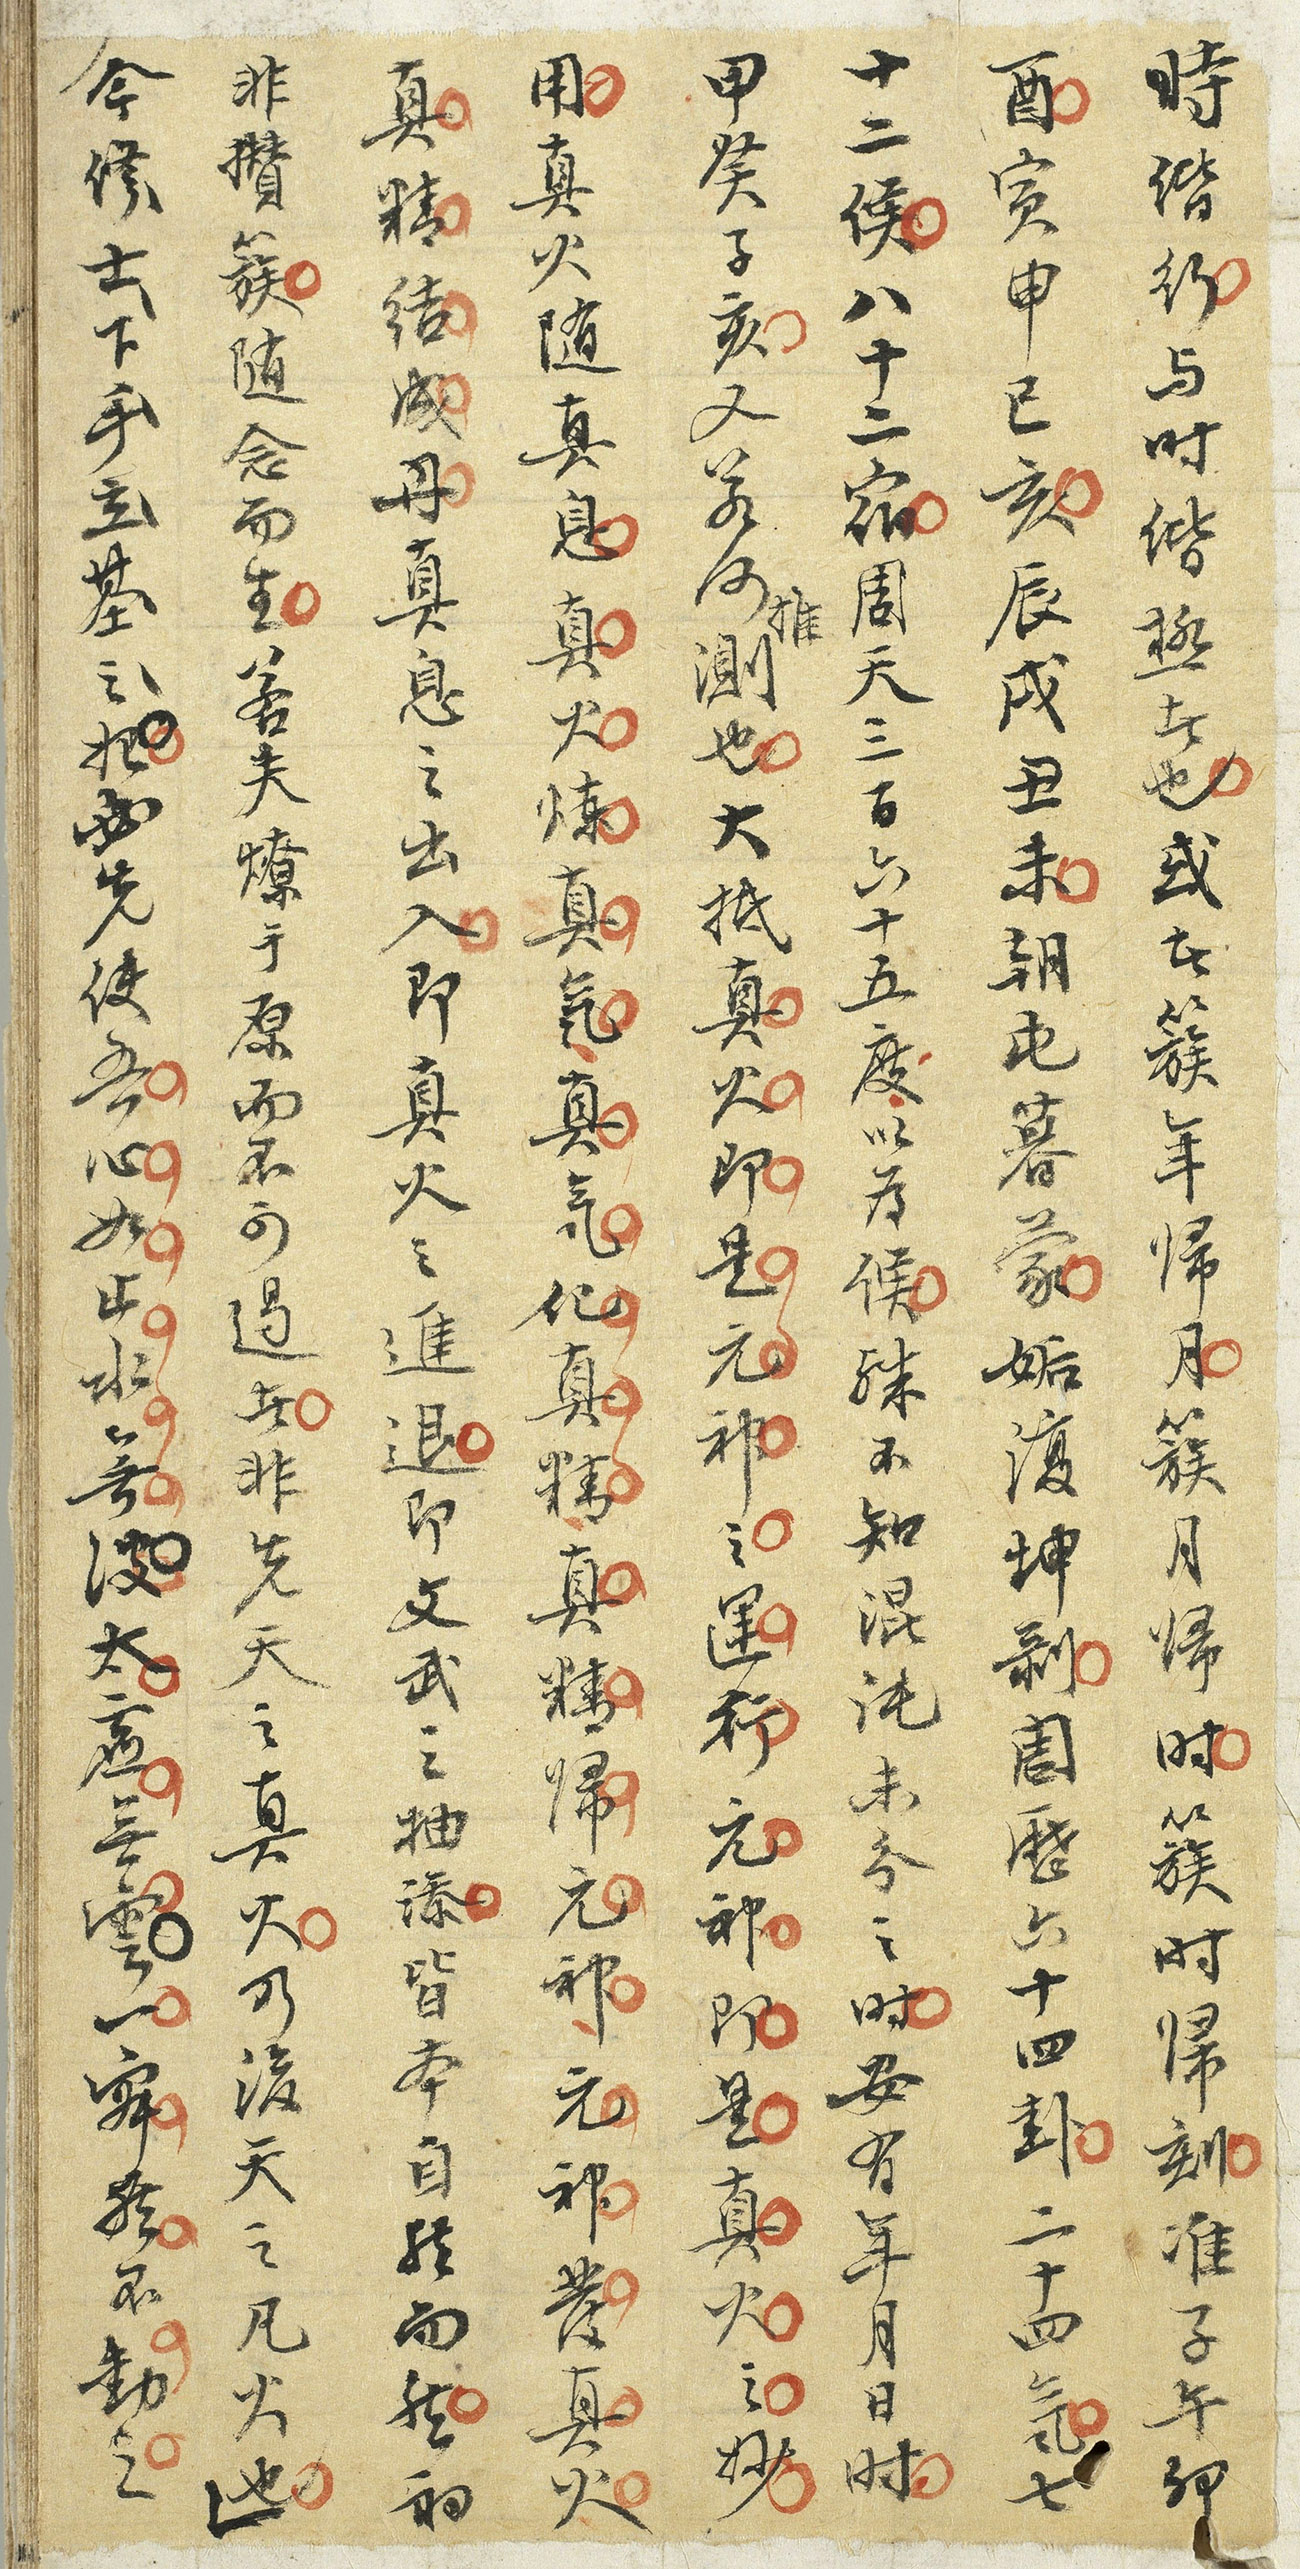 時偕行与时偕極者也或者簇年帰月簇月帰时簇时帰刻准子午卯
酉寅申巳亥辰戌丑未朝屯暮蒙姤復坤剥周歷六十四卦二十四氣七
十二候八十二宿周天三百六十五度以为候殊不知混沌未分之时安有年月日时
甲癸子亥又若何推測也大抵真火即是元神之運行元神即是真火之妙
用真火随真息真火煉真氣真氣化真精真精帰元神元神發真火
真精结成丹真息之出入即真火之進退即文武之抽添皆本自然而然初
非攢簇随念而生若夫燎于原而不可遏者非先天之真火乃後天之凡火也
今修士下手立基之初必先使吾心如止水無波太虚無雲一寂然不動之